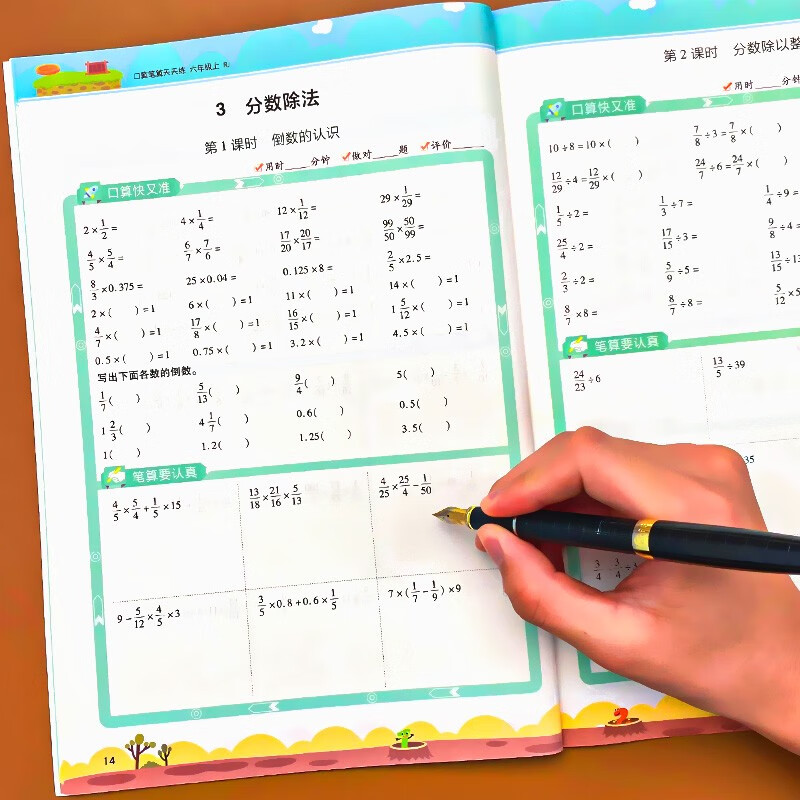 口算笔算天天练 六年级上 RJ
3 分数除法
第1课时 倒数的认识
✓用时____分钟 ✓做对____题 ✓评价____
口算快又准
2×1/2= 4×1/4= 12×1/12= 29×1/29=
4/5×5/4= 6/7×7/6= 17/20×20/17= 99/50×50/99=
8/3×0.375= 25×0.04= 0.125×8= 2/5×2.5=
2×( )=1 6×( )=1 11×( )=1 14×( )=1
4/7×( )=1 17/8×( )=1 16/15×( )=1 1 5/12×( )=1
0.5×( )=1 0.75×( )=1 3.2×( )=1 4.5×( )=1
写出下面各数的倒数。
1/7( ) 5/13( ) 9/4( ) 5( )
1 2/3( ) 4 1/7( ) 0.6( ) 0.5( )
1( ) 1.2( ) 1.25( ) 3.5( )
笔算要认真
4/5×5/4+1/5×15 13/18×21/16×5/13 4/25×25/4-1/50
9-5/12×4/5×3 3/5×0.8+0.6×1/5 7×(1/7-1/9)×9
14
第2课时 分数除以整
✓用时____分钟
口算快又准
10÷8=10×( ) 7/8÷3=7/8×( )
12/29÷4=12/29×( ) 24/7÷6=24/7×( )
1/5÷2= 1/3÷7= 1/4÷9=
25/4÷2= 17/15÷3= 9/8÷4=
2/3÷2= 5/9÷5= 13/15÷13
8/7×8= 8/7÷8= 5/12×5
笔算要认真
24/23÷6 13/5÷39
35
3/4 3/4÷